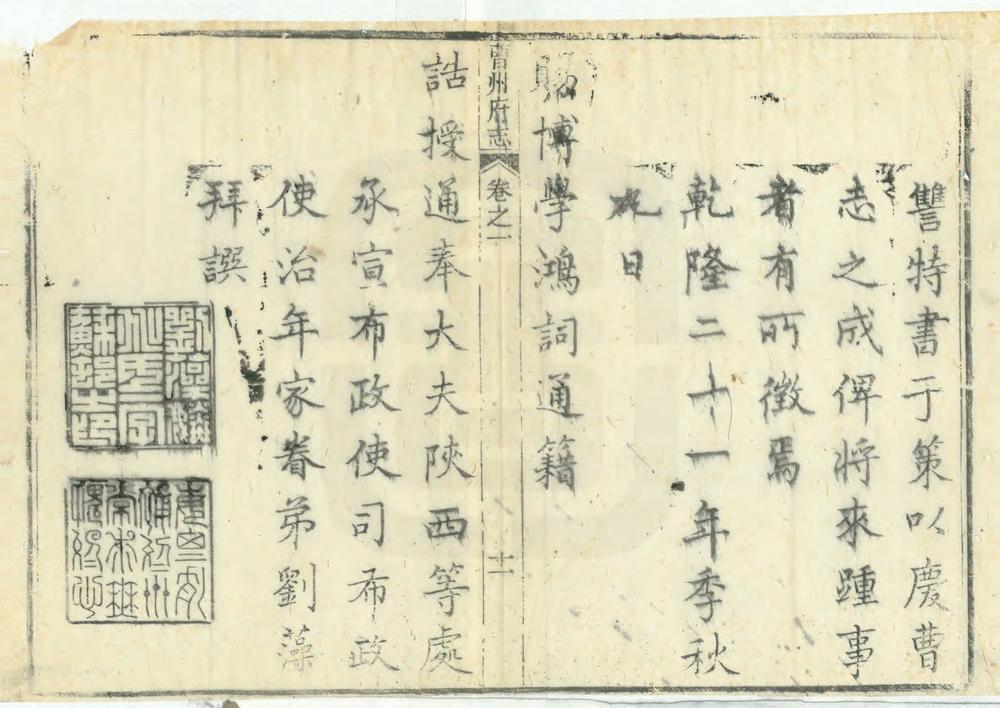 讐特書于策以慶曹
志之成俾將來踵事
者有所徵焉
乾隆二十一年季秋
日
曹州府志
卷之一
十一
賜博學鴻詞通籍
誥授通奉大夫陝西等處
承宣布政使司布政
使治年家眷弟劉藻
拜譔